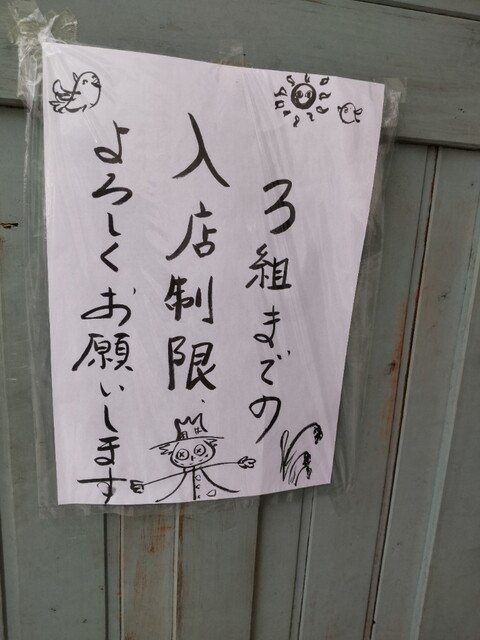 3組までの
入店制限、
よろしくお願いします